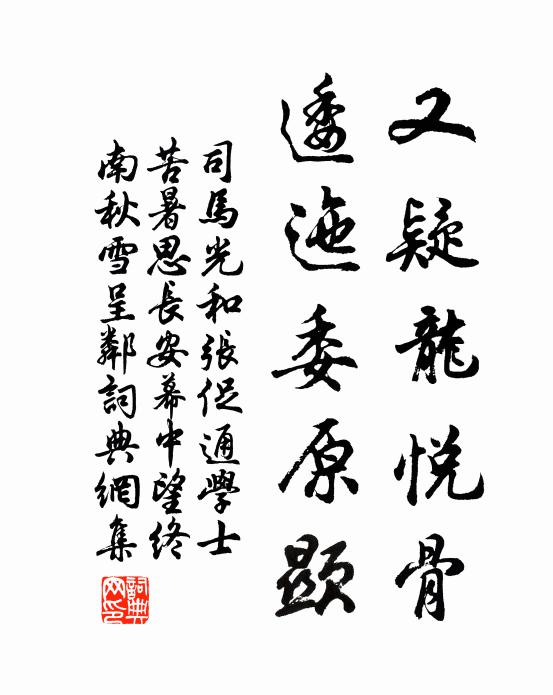 又疑龍悅骨
逶迤委原顯
司馬光和張伲通學士
苦暑思長安幕中望終
南秋雪呈鄰詞典網集
詞典
网印